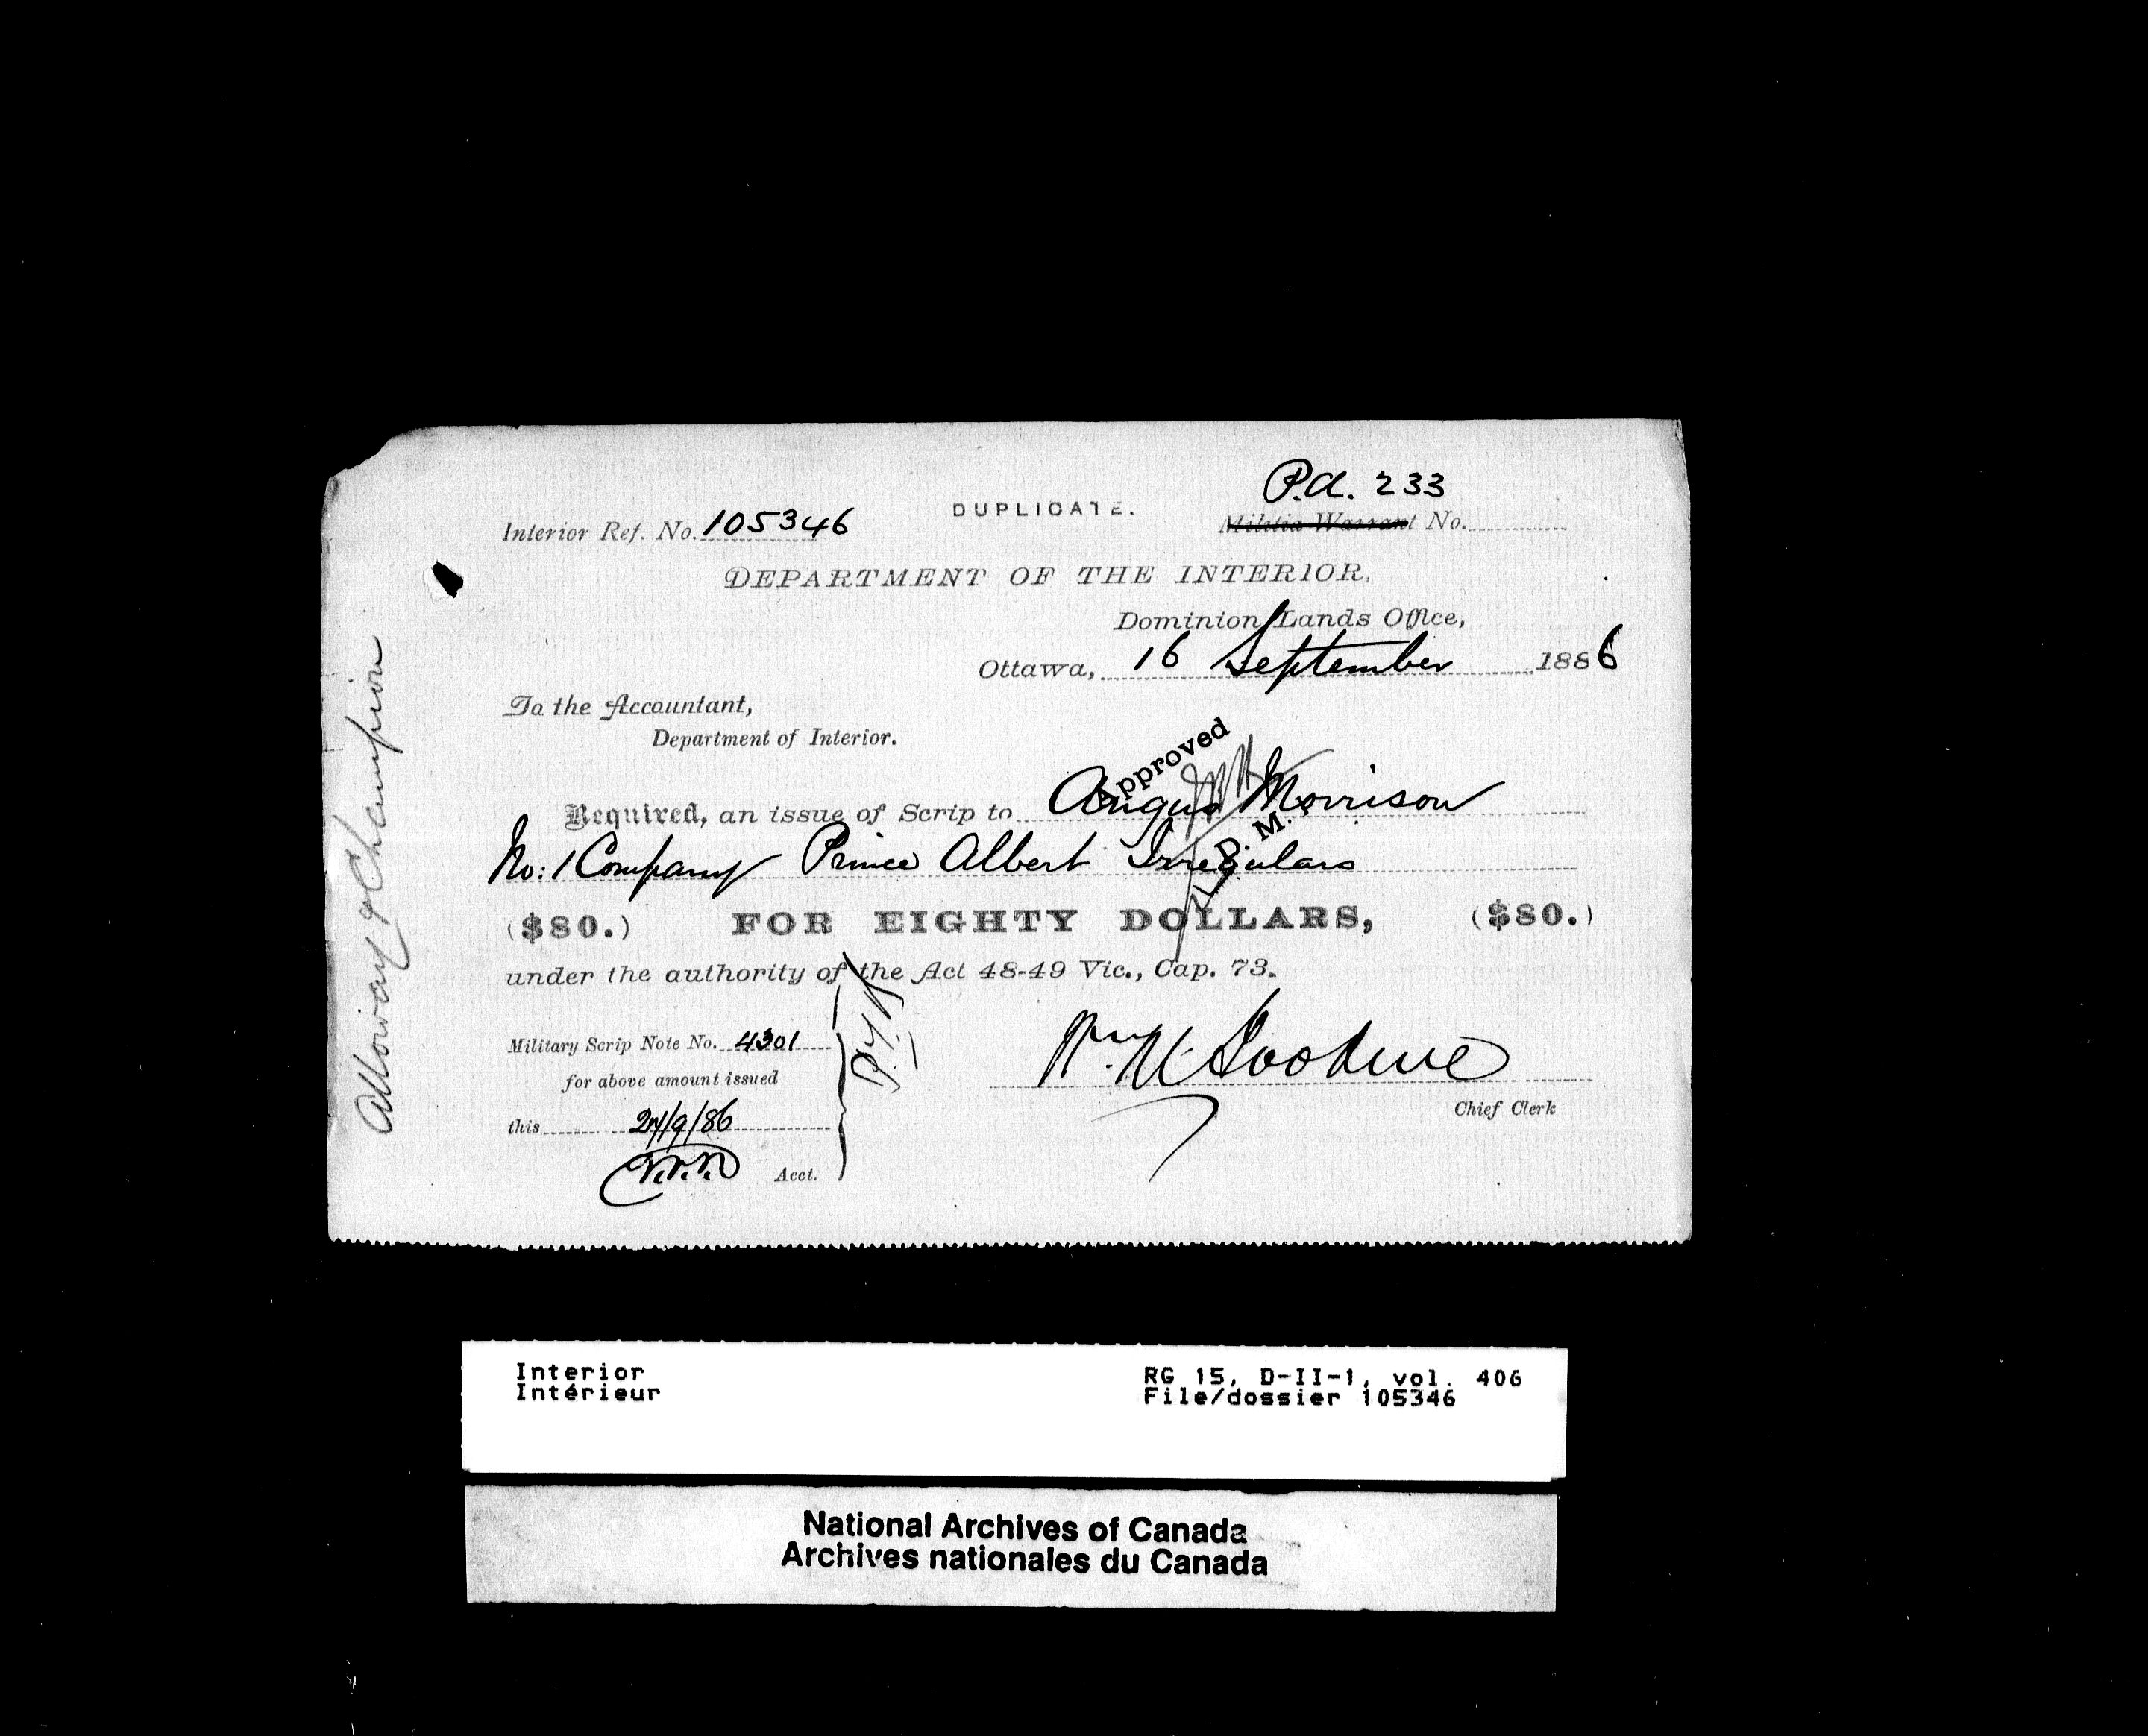 P.A. 233
Interior Ref. No. 105346
DUPLICATE.
Militia Warrant No.
DEPARTMENT OF THE INTERIOR,
Dominion Lands Office,
Ottawa, 16 September 1886
To the Accountant,
Department of Interior.
Approved
Required, an issue of Scrip to Angus Morrison
No: 1 Company Prince Albert Irregulars
($80.) FOR EIGHTY DOLLARS, ($80.)
under the authority of the Act 48-49 Vic., Cap. 73.
Military Scrip Note No. 4301
for above amount issued
this 27/9/86
Acct.
Chief Clerk
Alloway & Champion
Interior
Intérieur
RG 15, D-II-1, vol. 406
File/dossier 105346
National Archives of Canada
Archives nationales du Canada